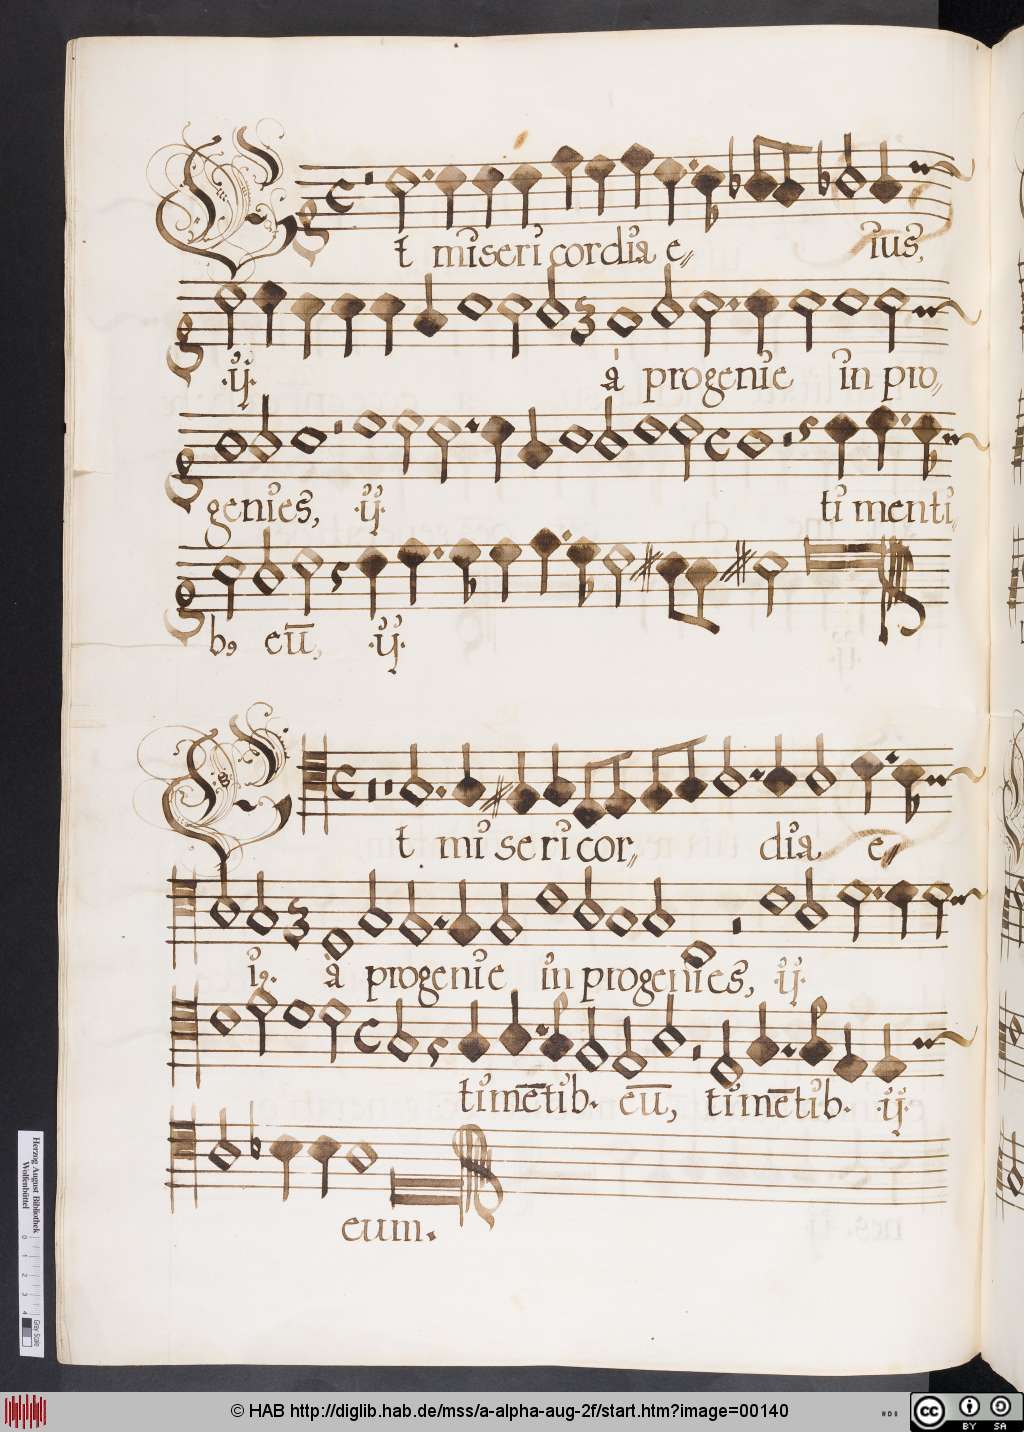 Et misericordia e⸗ ius,
.ij. à progenie in pro⸗
genies, .ij. timenti⸗
b9 eū, .ij.
Et misericor⸗ dia e⸗
i9. à progenie in progenies, .ij.
timētib. eū, timētib. .ij.
eum.
Herzog August Bibliothek
Wolfenbüttel
0 1 2 3 4
Gray Scale
© HAB http://diglib.hab.de/mss/a-alpha-aug-2f/start.htm?image=00140
cc BY SA